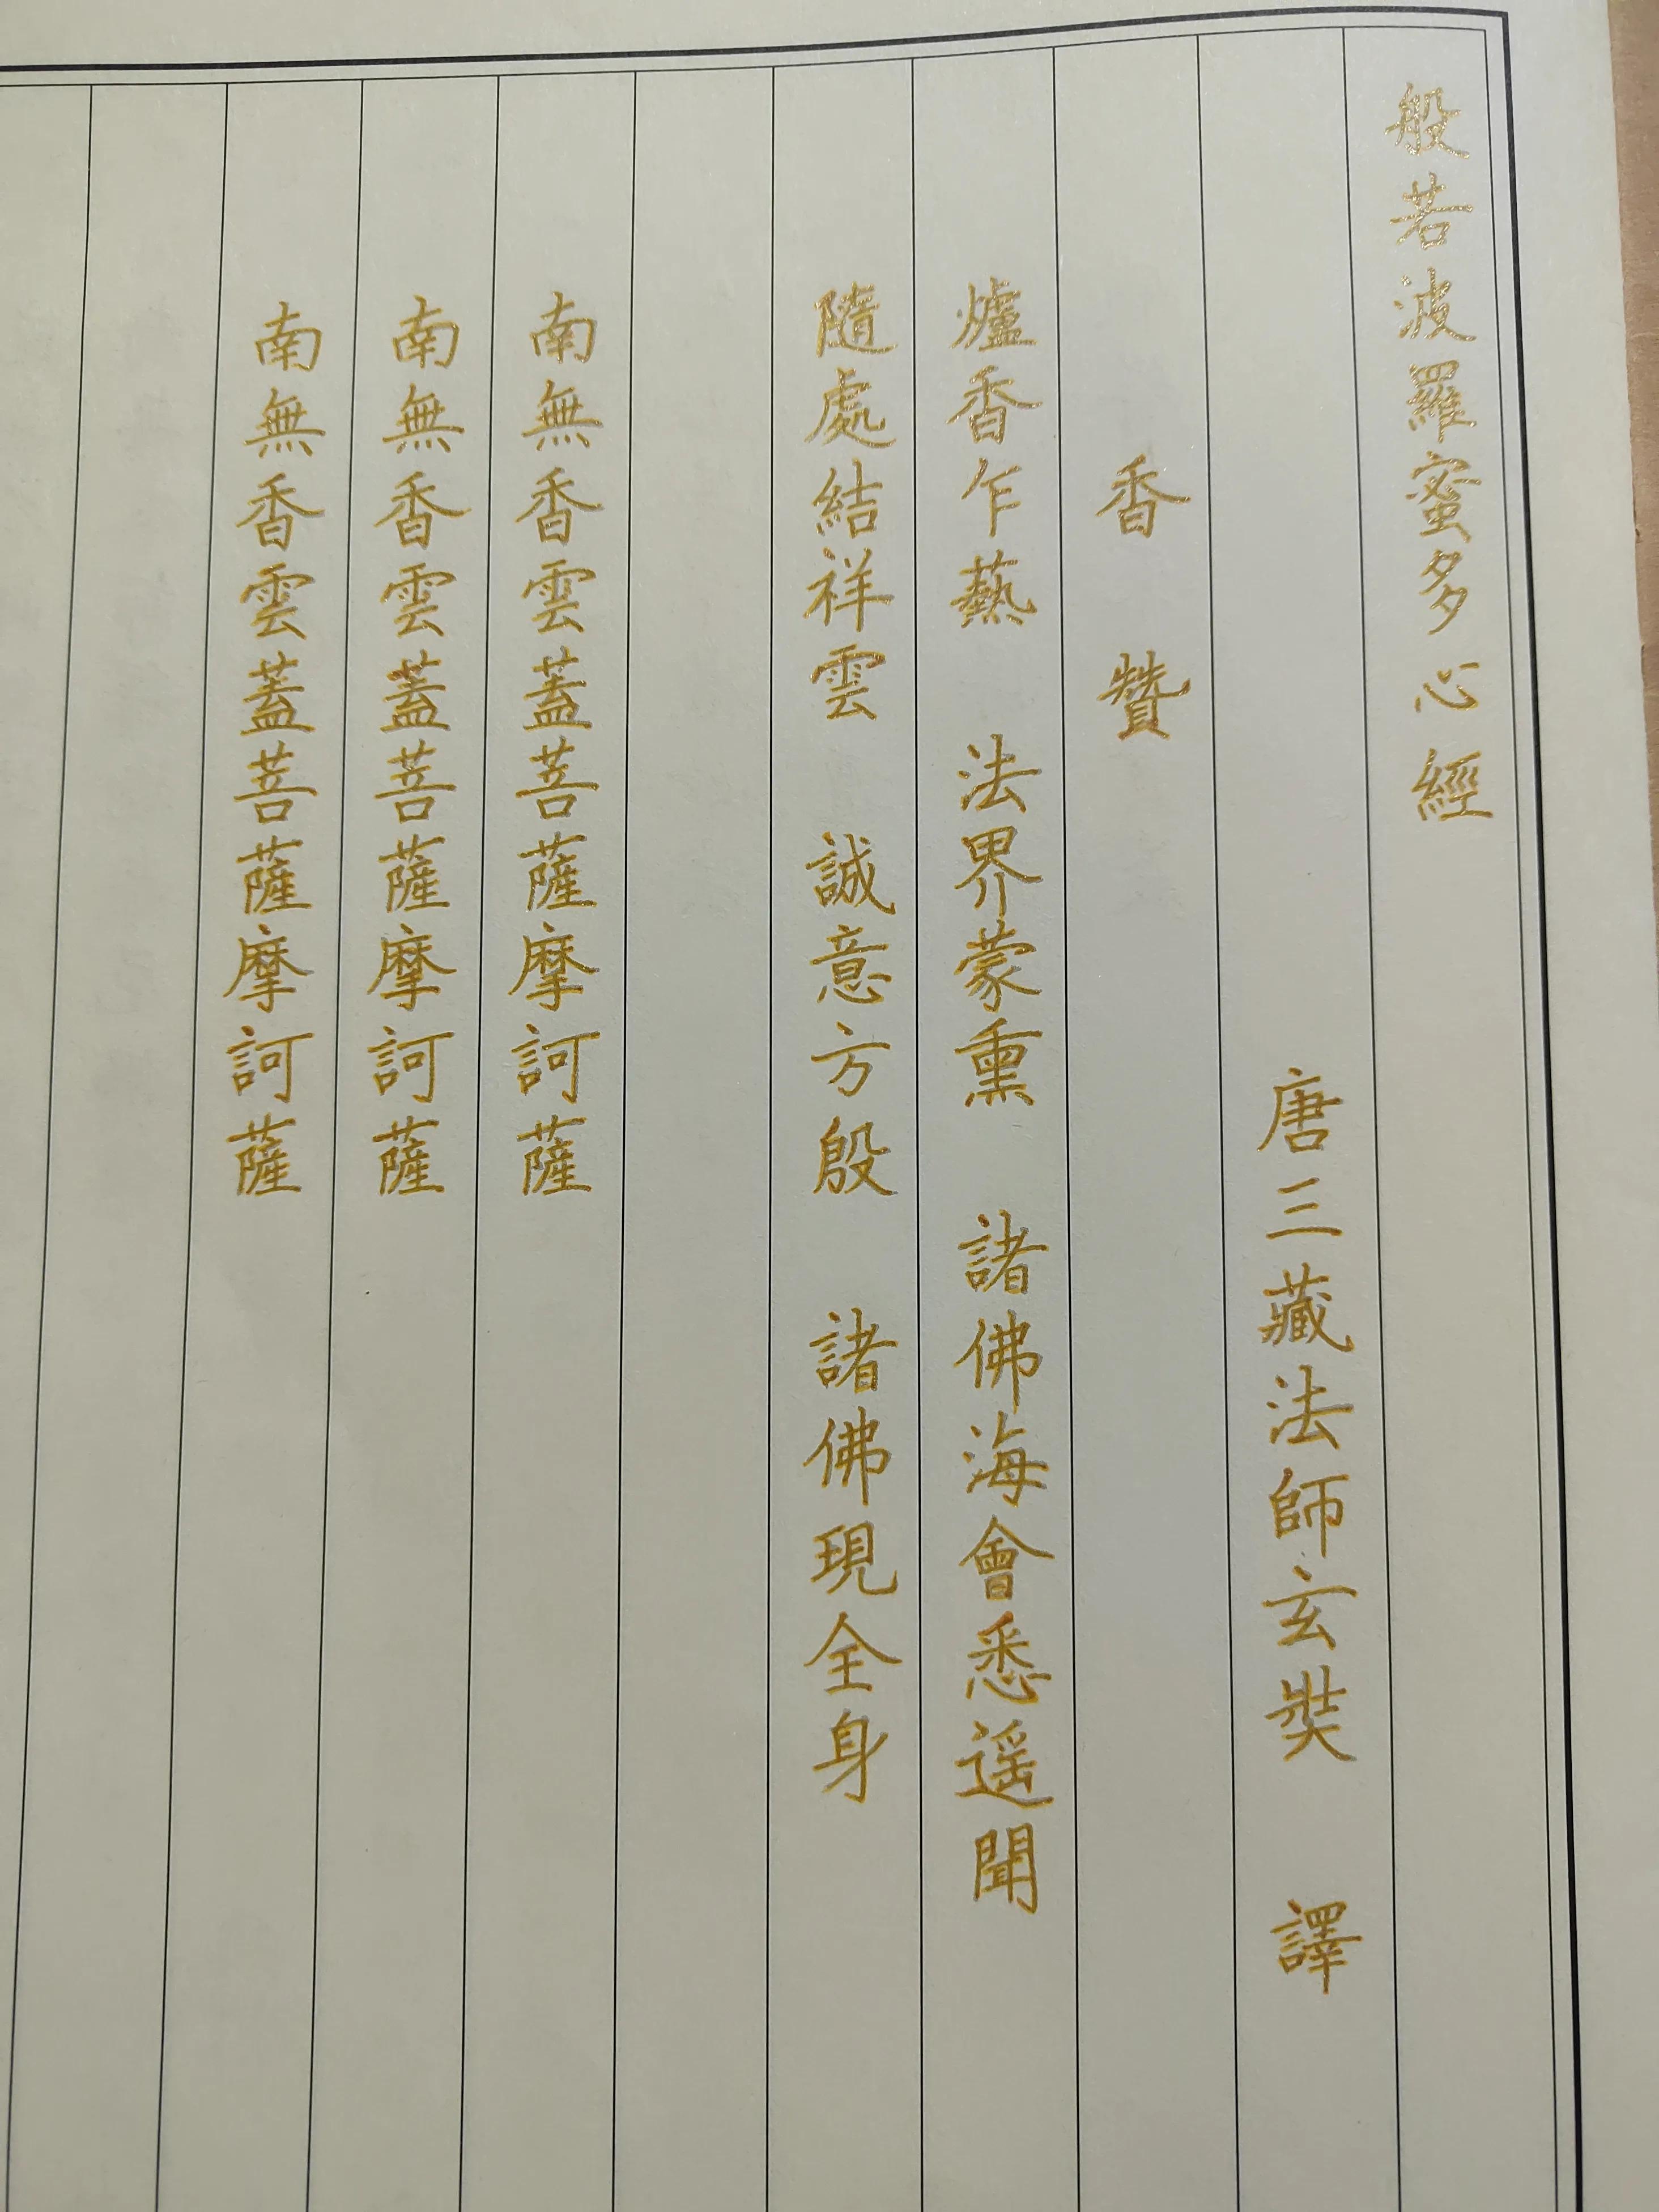 般若波羅蜜多心經
唐三藏法師玄奘 譯
香 贊
爐香乍爇 法界蒙熏 諸佛海會悉遥聞
隨處結祥雲 誠意方殷 諸佛現全身
南無香雲蓋菩薩摩訶薩
南無香雲蓋菩薩摩訶薩
南無香雲蓋菩薩摩訶薩